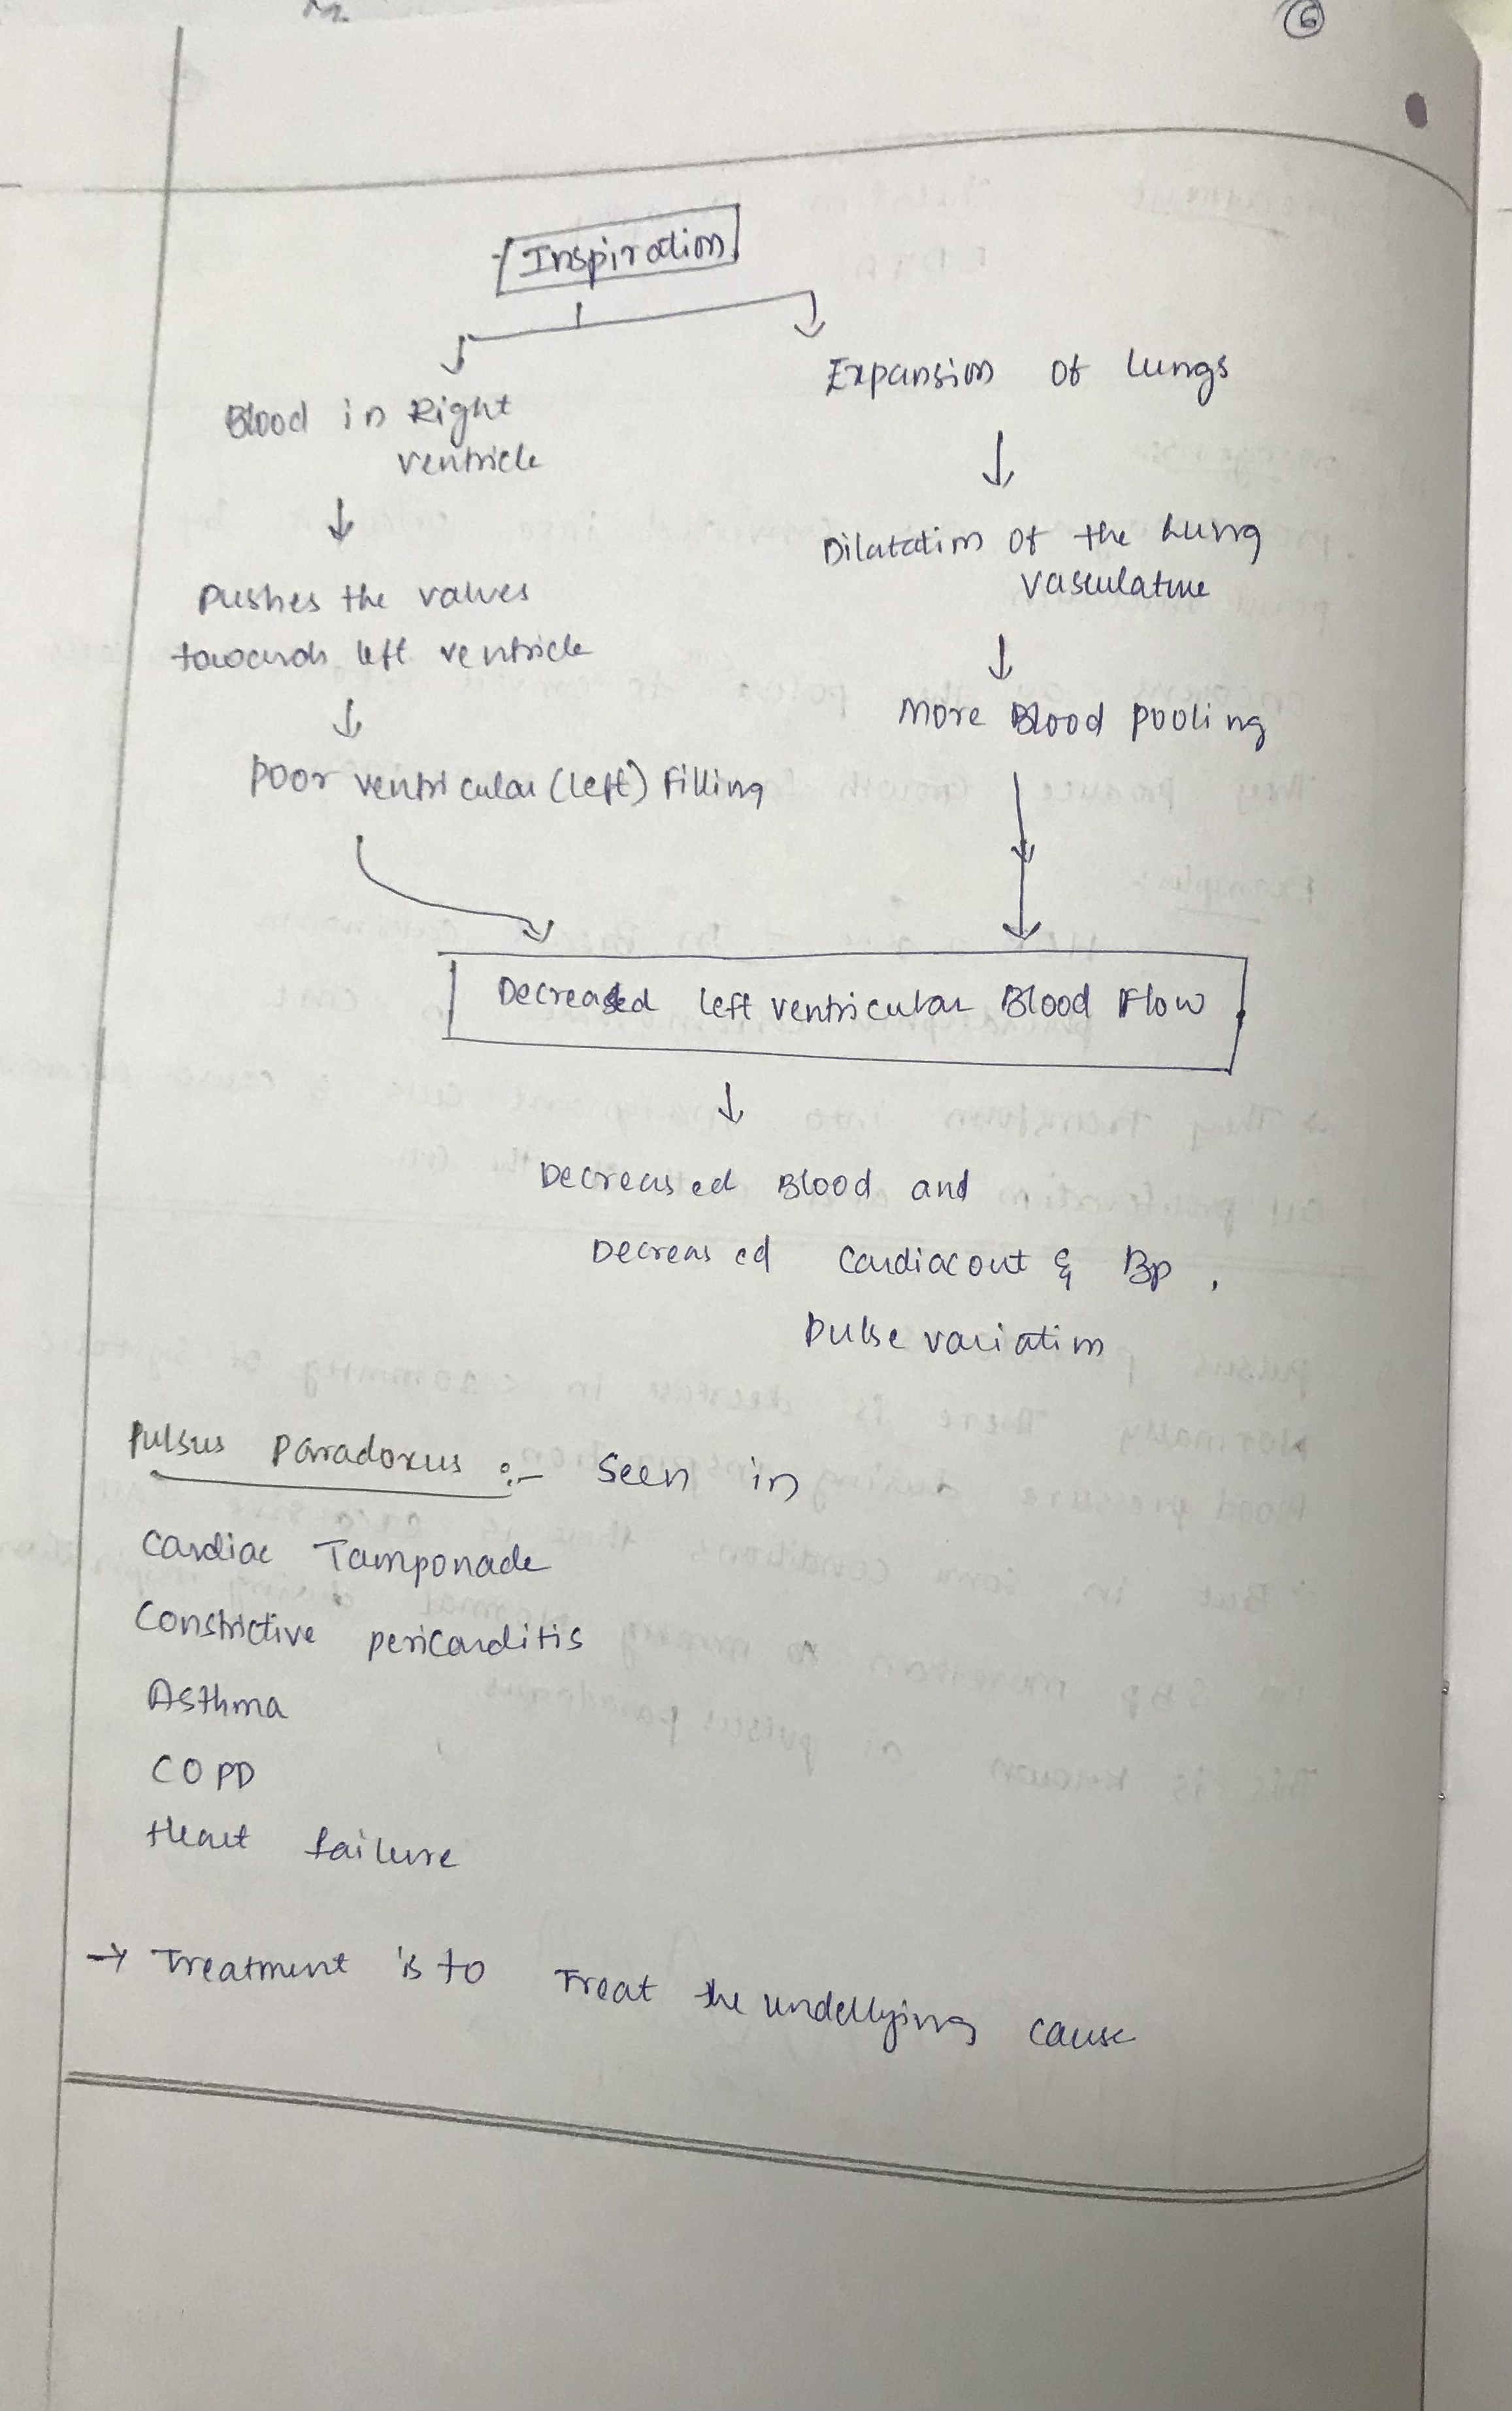 6
Inspiration
Blood in Right
ventricle
Pushes the valves
towards left ventricle
poor ventricular (left) Filling
Expansion of Lungs
Dilatation of the Lung
vasculature
More Blood pooling
Decreased left ventricular Blood Flow
Decreased Blood and
Decreased Cardiac out & Bp,
Pulse variation
Pulsus Paradoxus :- Seen in
Cardiac Tamponade
Constrictive pericarditis
Asthma
COPD
Heart failure
→ Treatment is to Treat the undellying cause